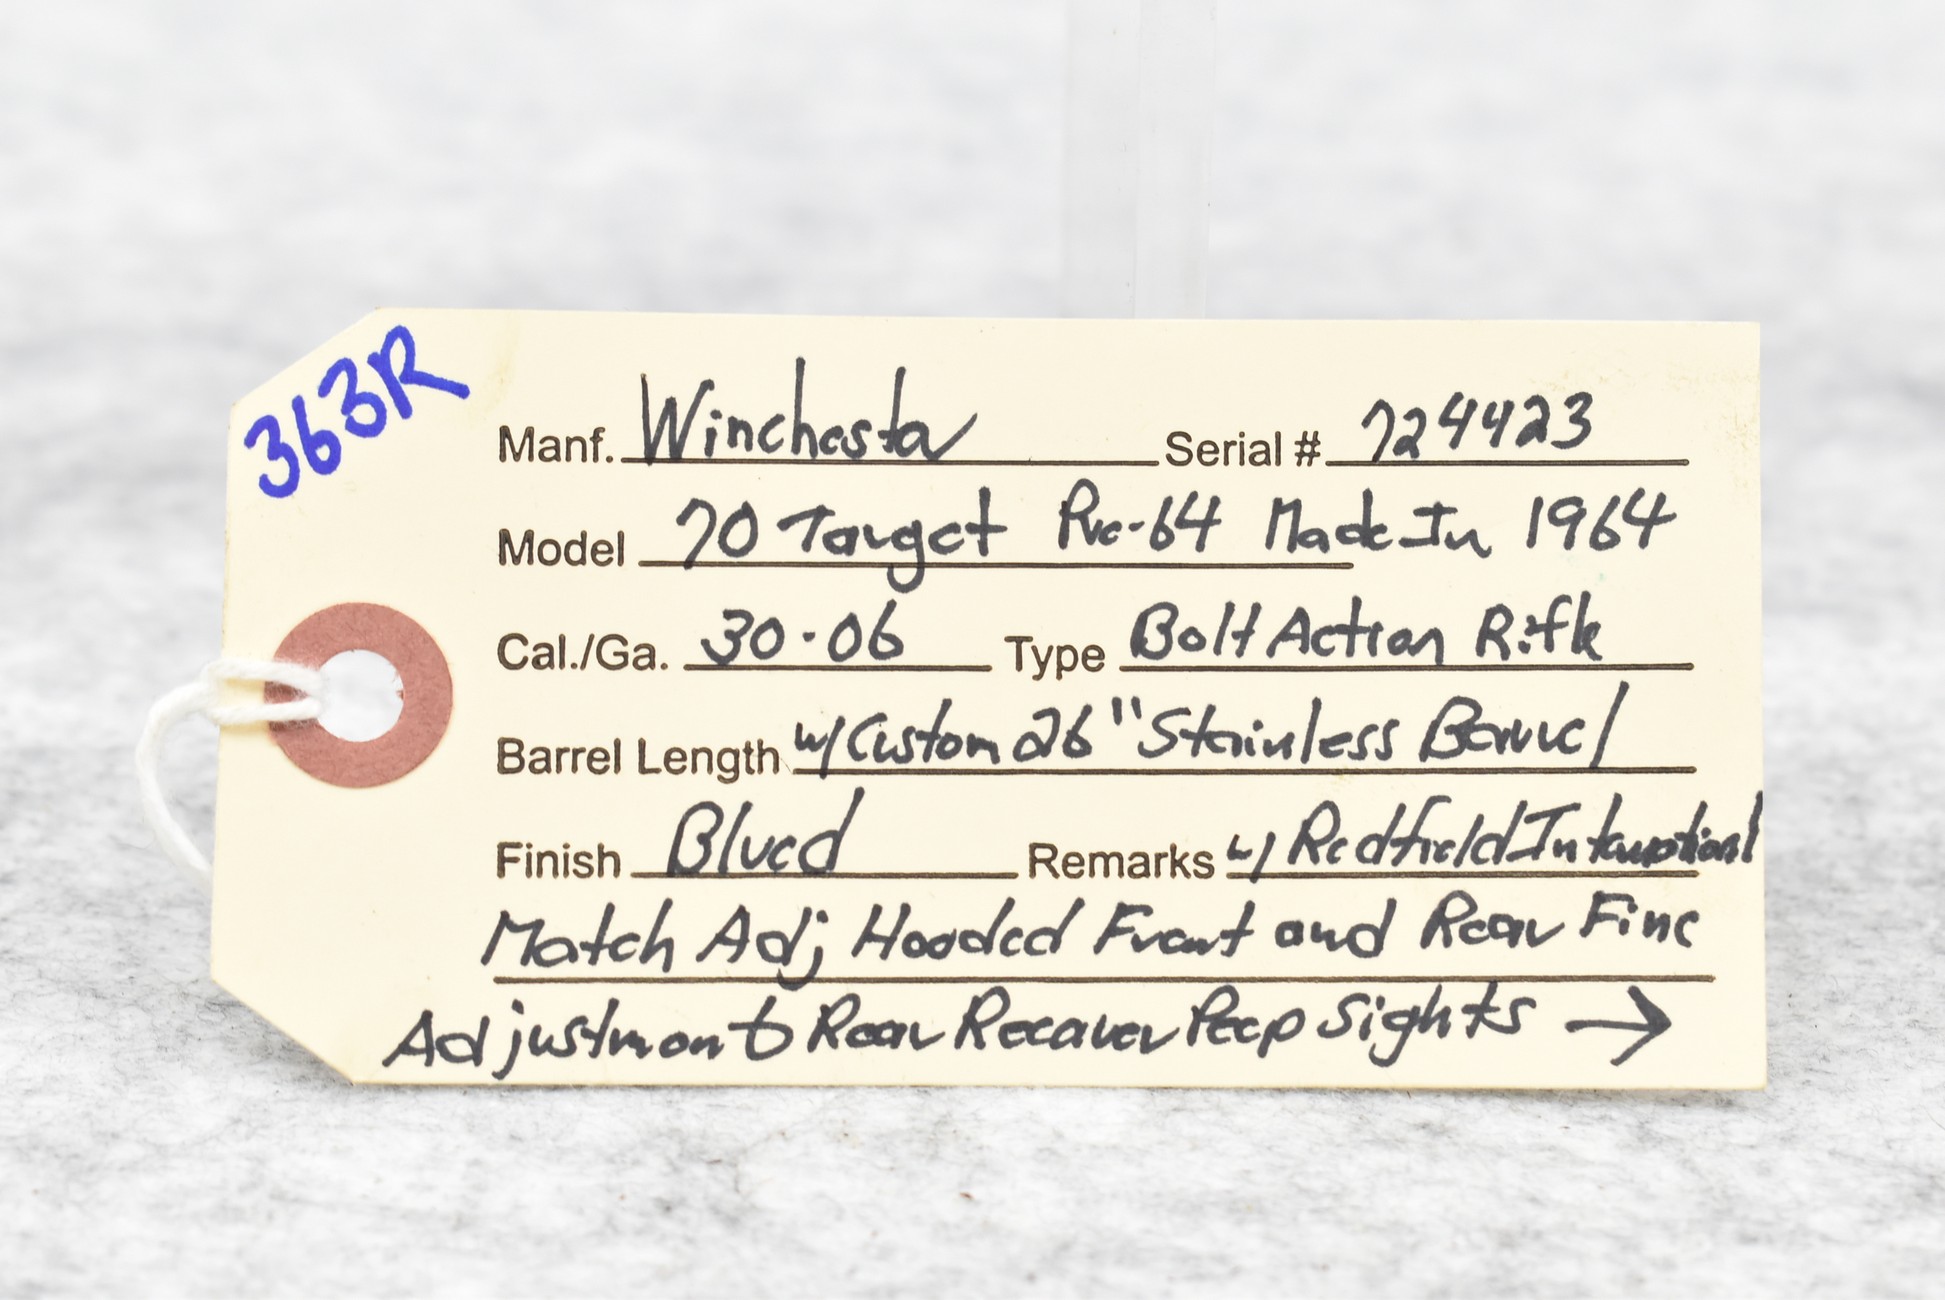 363R
Manf. Winchester Serial # 724423
Model 70 Target Pre-64 Made In 1964
Cal./Ga. 30-06 Type Bolt Action Rifle
Barrel Length w/ Custom 26" Stainless Barrel
Finish Blued Remarks w/ Redfield International
Match Adj Hooded Front and Rear Fine
Adjustment Rear Receiver Peep Sights →